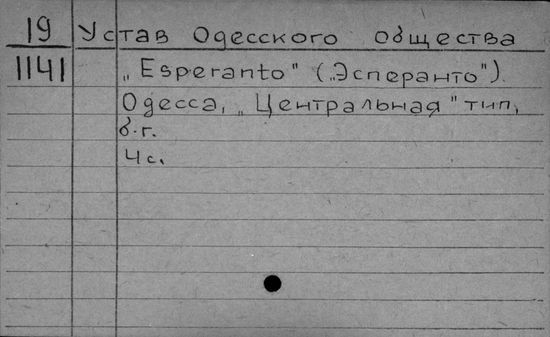 19 Устав Одесского общества
1141 „Esperanto" („Эсперанто").
Одесса, „Центральная" тип,
б.г.
4с.